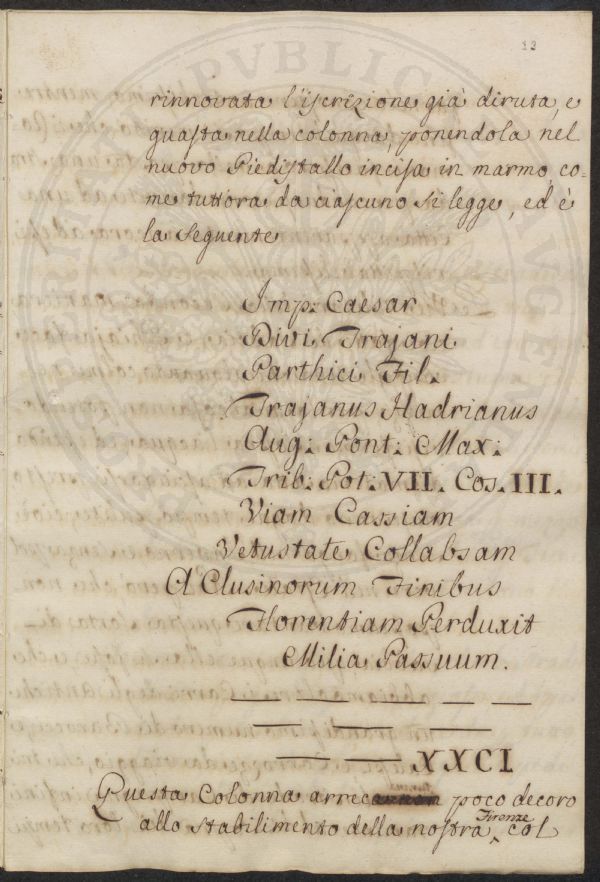 12
rinnovata l'iscrizione già diruta, e
guasta nella colonna, ponendola nel
nuovo Piedistallo incisa in marmo co=
me tuttora da ciascuno si legge, ed è
la seguente
Imp: Caesar
Divi Trajani
Parthici Fil.
Trajanus Hadrianus
Aug: Pont: Max:
Trib: Pot: VII. Cos. III.
Viam Cassiam
Vetustate Collabsam
A Clusinorum Finibus
Florentiam Perduxit
Milia Passuum.
— — — — —
— — —
— — XXCI
Questa Colonna arreca poco decoro
Firenze
allo stabilimento della nostra ^ col